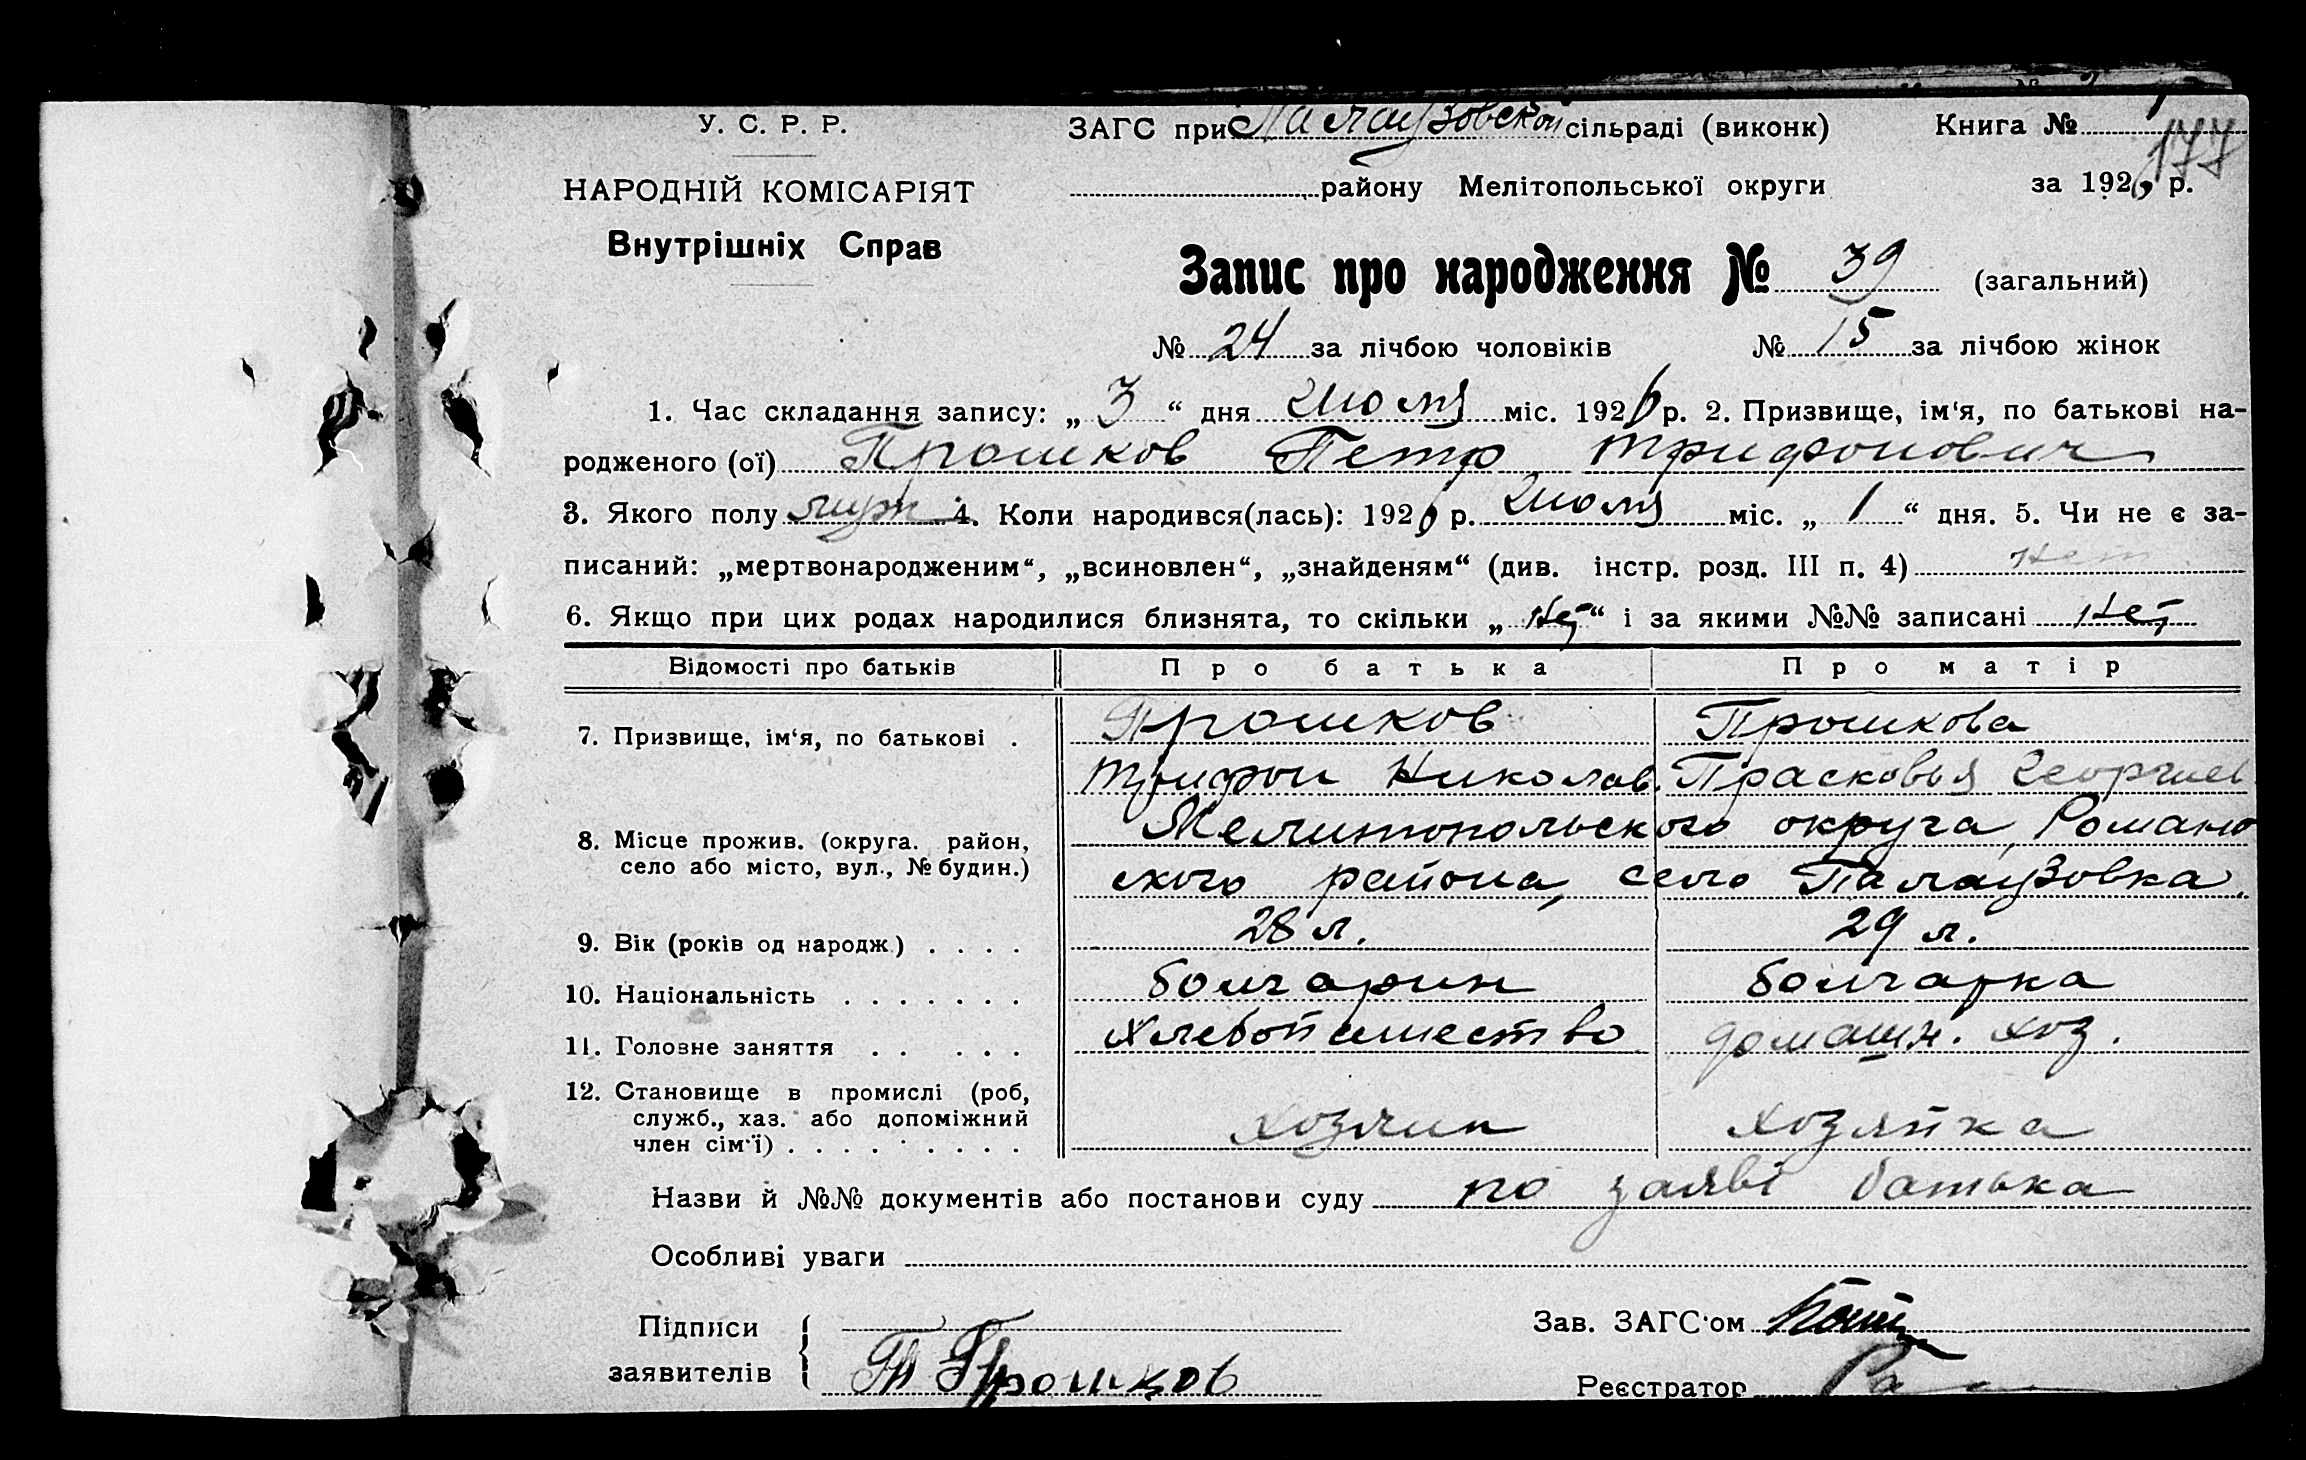 У. С. Р. Р. ЗАГС при Палаузовской сільраді (виконк) Книга №
177
НАРОДНІЙ КОМІСАРІЯТ району Мелітопольської округи за 1926 р.
Внутрішніх Справ
Запис про народження № 39 (загальний)
№ 24 за лічбою чоловіків № 15 за лічбою жінок
1. Час складання запису: „ 3 “ дня Июля міс. 1926 р. 2. Призвище, ім‘я, по батькові на-
родженого (ої) Прошков Петр Трифонович
3. Якого полу муж 4. Коли народився(лась): 1926 р. Июля міс. „ 1 “ дня. 5. Чи не є за-
писаний: „мертвонародженим“, „всиновлен“, „знайденям“ (див. інстр. розд. III п. 4) нет
6. Якщо при цих родах народилися близнята, то скільки „ Нет “ і за якими №№ записані Нет
Відомості про батьків Про батька Про матір
7. Призвище, ім‘я, по батькові . Прошков Прошкова
Трифон Николав. Прасковья Георгиев
8. Місце прожив. (округа. район, Мелитопольского округа, Романо
село або місто, вул., № будин.) ского района, село Палаузовка.
9. Вік (років од народж.) . . . . 28 л. 29 л.
10. Національність . . . . . . . болгарин болгарка
11. Головне заняття . . . . . Хлебопашество домашн. хоз.
12. Становище в промислі (роб,
служб., хаз. або допоміжний
член сім‘ї) . . . . . . . . . хозяин хозяйка
Назви й №№ документів або постанови суду по заяві батька
Особливі уваги
Підписи Зав. ЗАГС‘ом
заявителів Т Прошков
Реєстратор